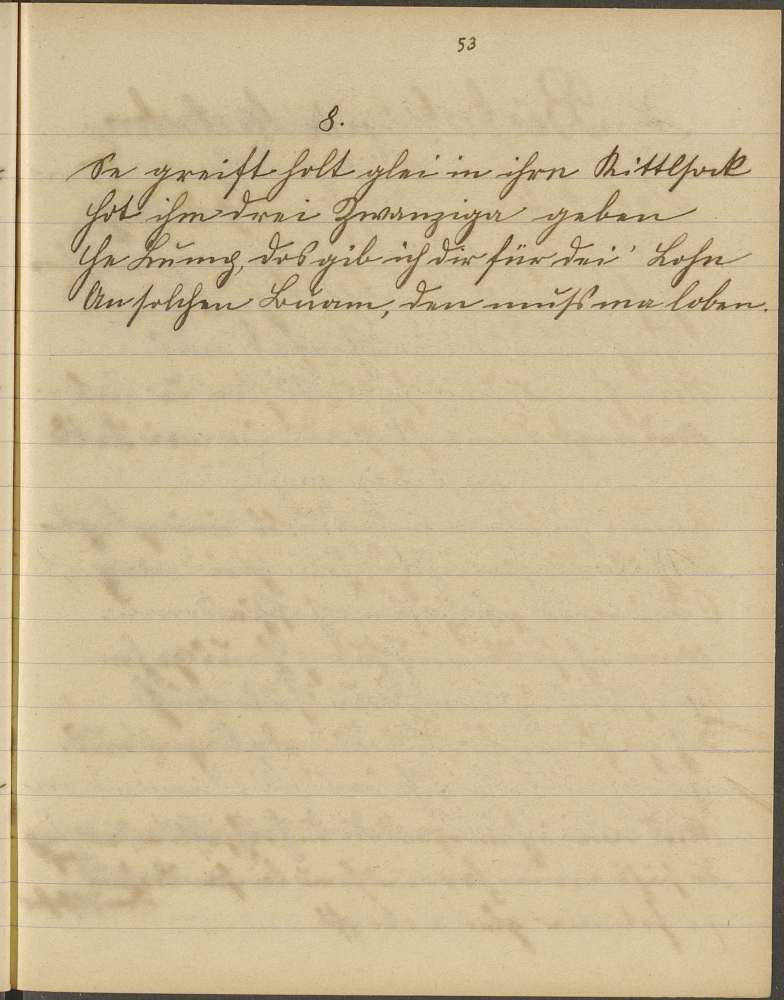 53
8.
Se greift holt glei in ihrn Kittlsack
hot ihm drei Zwanziga geben
He Lump, das gib ich dir für dei' Lohn
An solchen Buam, den muss ma loben.